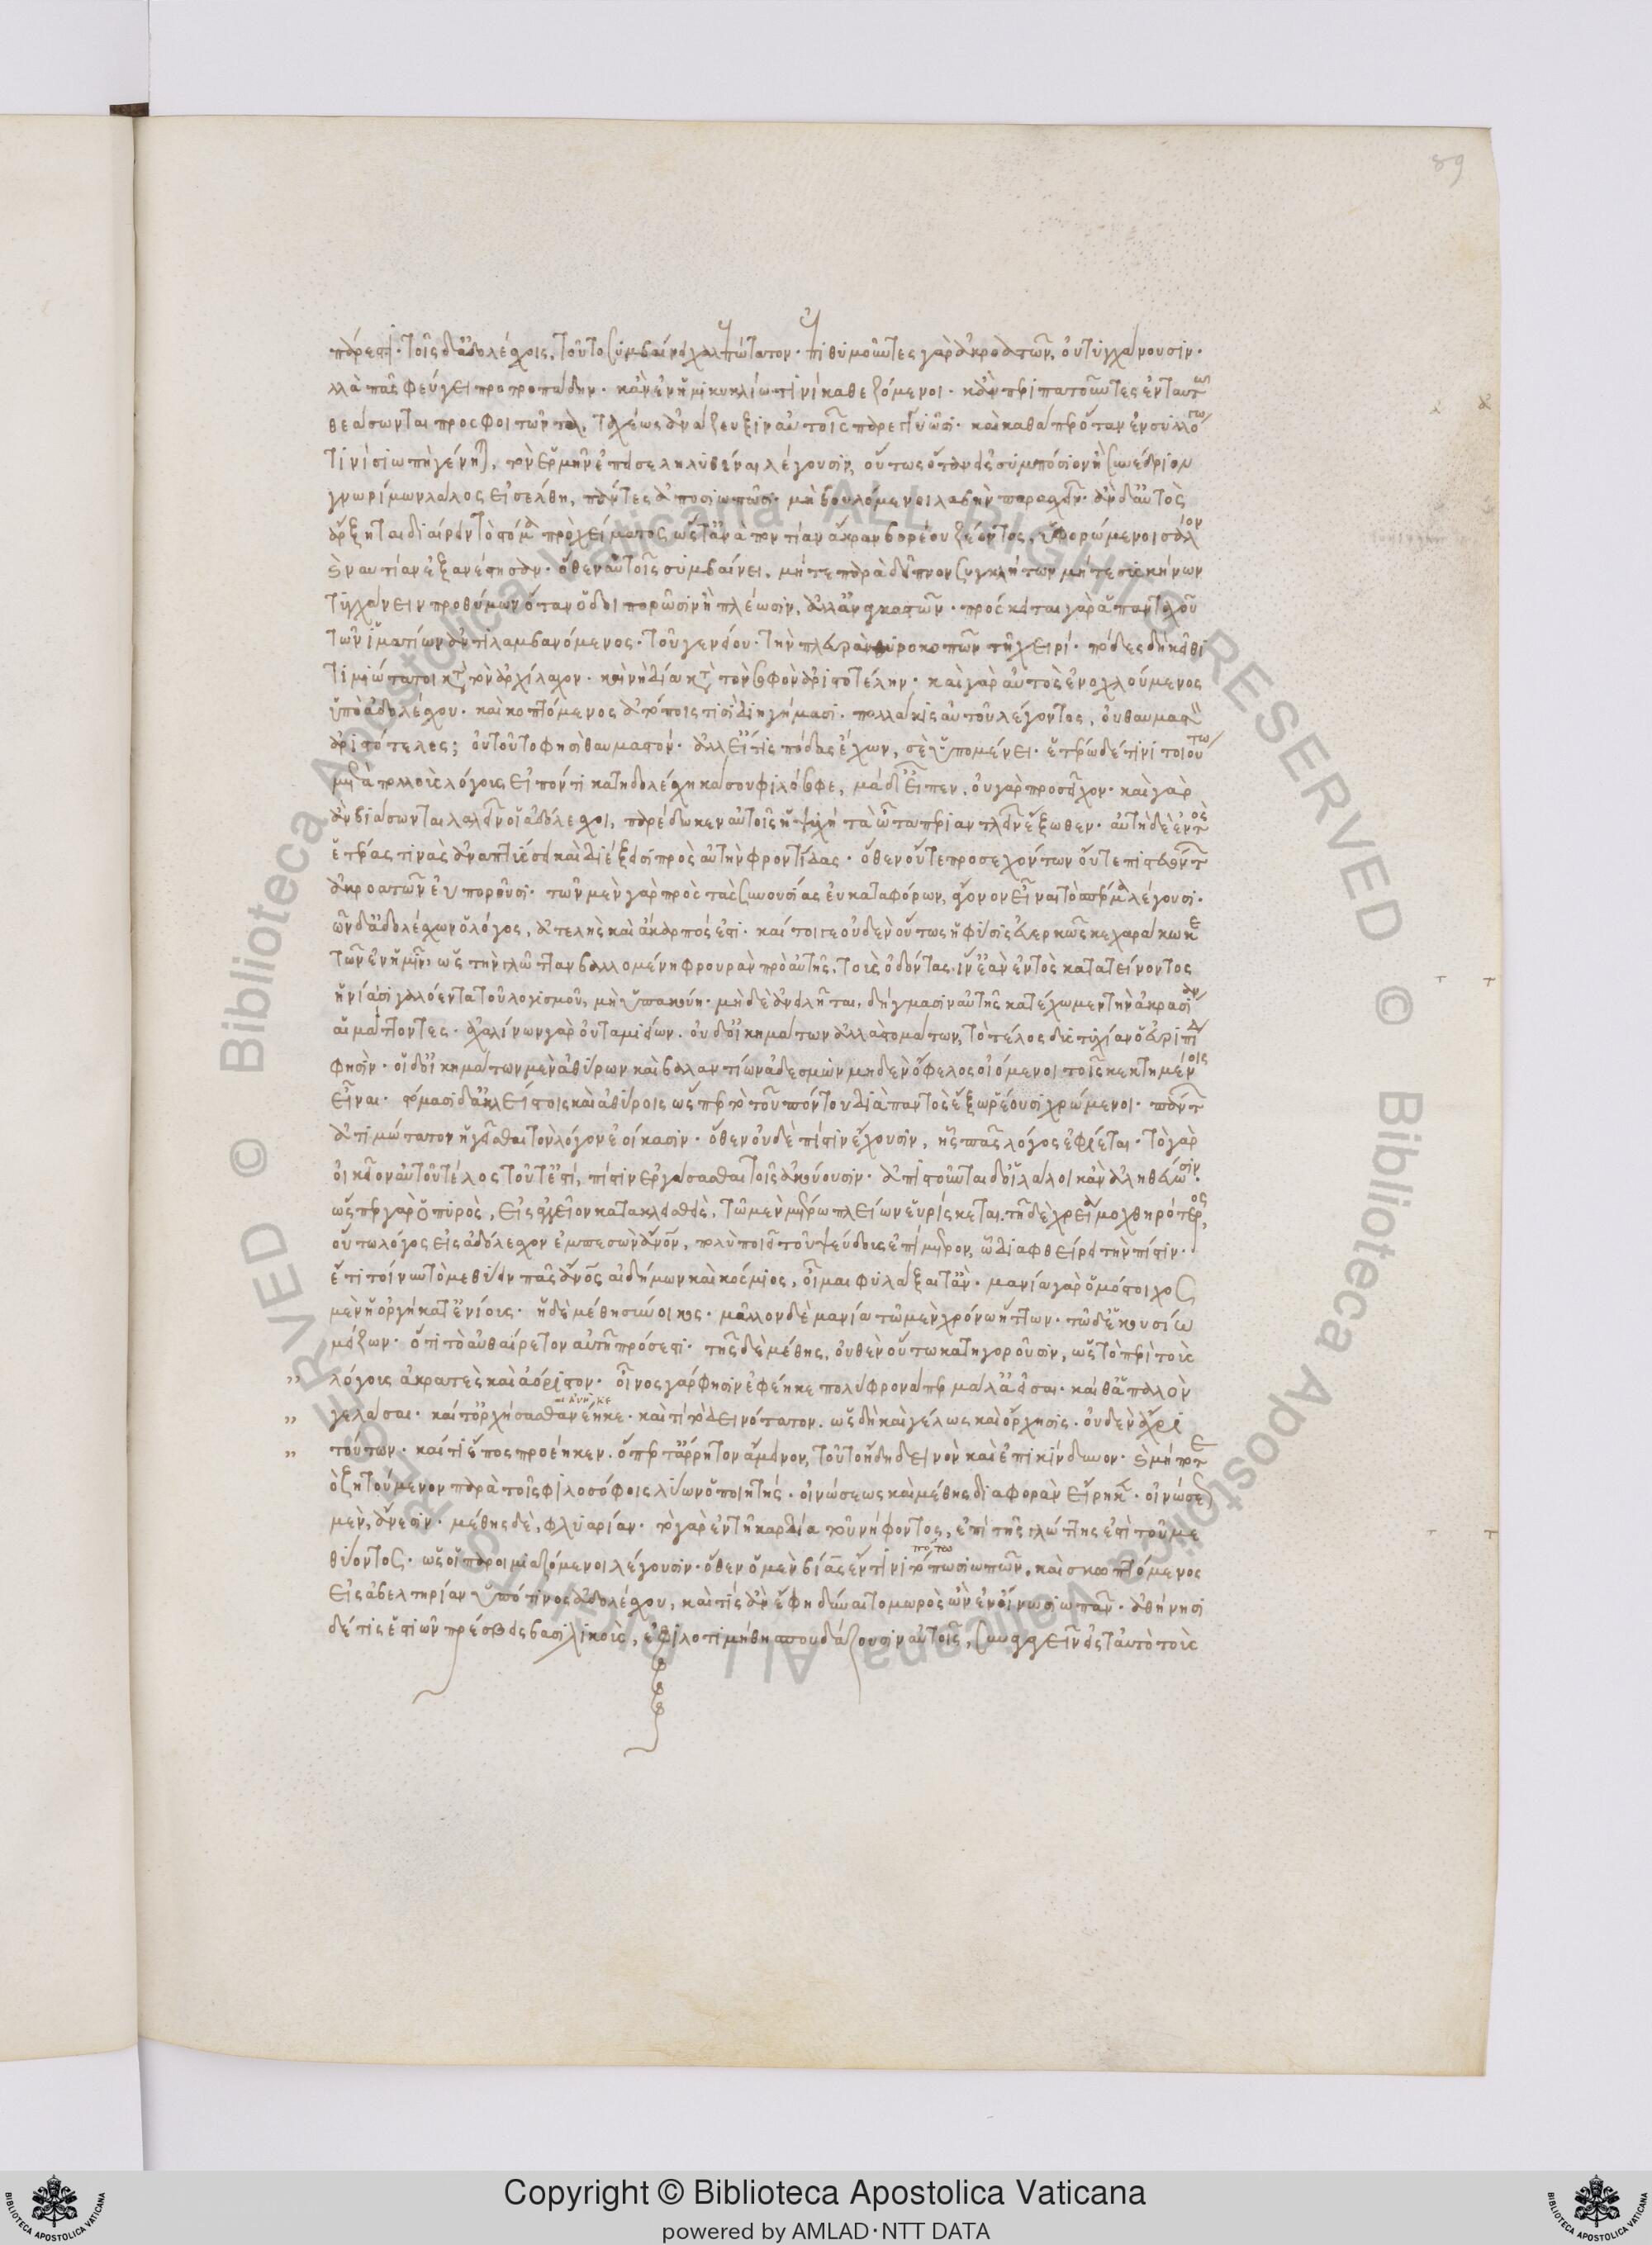 89
πάρεστι· τοῖς δ' ἀδολέσχοις, τοῦτο συμβαίνει χαλεπώτατον· ἐπιθυμοῦντες γὰρ ἀκροατῶν, οὐ τυγχάνουσιν·
ἀλλὰ πᾶς φεύγει προτροπάδην· κἂν ἐν ἡμικυκλίω τινὶ καθεζόμενοι· κἂν περιπατοῦντες ἐν ταυτῶ
θεάσωνται προσφοιτῶντα, ταχέως ἀνάζευξιν αὑτοῖς παρεγγυῶσι· καὶ καθάπερ ὅταν ἐν συλλόγω
τινὶ σιωπὴ γένηται, τὸν ἑρμῆν ἐπεισεληλυθέναι λέγουσιν, οὕτως ὅταν εἰς συμπόσιον ἢ συνέδριον
γνωρίμων λάλος εἰσέλθη, πάντες ἀποσιωπῶσι· μὴ βουλόμενοι λαβὴν παρασχεῖν· ἂν δ' αὐτὸς
ἄρξηται διαίρειν τὸ στόμα πρὸ χείματος ὥστ' ἀνὰ ποντίαν ἄκραν βορέου ζέοντος, ὑφορώμενοι σάλον
καὶ ναυτίαν ἐξανέστησαν· ὅθεν αὐτοῖς συμβαίνει, μήτε παρὰ δεῖπνον συγκλήτων μήτε συσκήνων
τυγχάνειν προθύμων ὅταν ὁδοιπορῶσιν ἢ πλέωσιν, ἀλλ' ἀναγκαστῶν· πρόσκειται γὰρ ἁπανταχοῦ
τῶν ἱματίων ἀντιλαμβανόμενος· τοῦ γενείου· τὴν πλευρὰν θυροκοπῶν τῆ χειρί· πόδες δὴ κεῖθι
τιμιώτατοι κατὰ τὸν ἀρχίλοχον· καὶ νὴ δία κατὰ τὸν σοφὸν ἀριστοτέλην· καὶ γὰρ αὐτὸς ἐνοχλούμενος
ὑπὸ ἀδολέσχου· καὶ κοπτόμενος ἀτόποις τισὶ διηγήμασι· πολλάκις αὐτοῦ λέγοντος, οὐ θαυμαστὸν
ἀριστότελες; οὐ τοῦτο φησὶ θαυμαστόν· ἀλλ' εἴ τις πόδας ἔχων, σὲ ὑπομένει· ἑτέρω δέ τινι τοιούτω
μετὰ πολλοὺς λόγους εἰπόντι κατηδολέσχηκά σου φιλόσοφε, μὰ δί' εἶπεν. οὐ γὰρ προσεῖχον· καὶ γὰρ
ἂν βιάσωνται λαλεῖν οἱ ἀδόλεσχοι, παρέδωκεν αὐτοῖς ἡ ψυχὴ τὰ ὦτα περιαντλεῖν ἔξωθεν· αὐτὴ δὲ ἐντὸς
ἑτέρας τινὰς ἀναπτύσσει καὶ διέξεισι πρὸς αὑτὴν φροντίδας· ὅθεν οὔτε προσεχόντων οὔτε πιστευόντων
ἀκροατῶν εὐποροῦσι· τῶν μὲν γὰρ πρὸς τὰς συνουσίας εὐκαταφόρων, ἄγονον εἶναι τὸ σπέρμα λέγουσι·
τῶν δ' ἀδολέσχων ὁ λόγος, ἀτελὴς καὶ ἄκαρπός ἐστι· καίτοι γε οὐδὲν οὕτως ἡ φύσις εὐερκῶς κεχαράκωκε
τῶν ἐν ἡμῖν· ὡς τὴν γλῶτταν βαλλομένη φρουρὰν πρὸ αὐτῆς, τοὺς ὀδόντας, ἵν' ἐὰν ἐντὸς κατατείνοντος
ἡνία σιγαλόεντα τοῦ λογισμοῦ, μὴ ὑπακούη· μὴδὲ ἀνειλῆται, δήγμασιν αὐτῆς κατέχωμεν τὴν ἀκρασίαν
αἱμάττοντες· ἀχαλίνων γὰρ οὐ ταμιείων. οὐδ' οἰκημάτων ἀλλὰ στομάτων, τὸ τέλος δυστυχίαν ὁ εὐριπίδης
φησὶν· οἱ δ' οἰκημάτων μὲν ἀθύρων καὶ βαλλαντίων ἀδέσμων μηδὲν ὄφελος οἰόμενοι τοῖς κεκτημένοις
εἶναι· στόμασι δ' ἀκλείστοις καὶ ἀθύροις ὥσπερ τὸ τοῦ πόντου διὰ παντὸς ἔξω ῥέουσι χρώμενοι· πάντων
ἀτιμώτατον ἡγεῖσθαι τὸν λόγον ἐοίκασιν· ὅθεν οὐδὲ πίστιν ἔχουσιν, ἧς πᾶς λόγος ἐφίεται· τὸ γὰρ
οἰκεῖον αὐτοῦ τέλος τοῦτ' ἐστί, πίστιν ἐργάσασθαι τοῖς ἀκούουσιν· ἀπιστοῦνται δ' οἱ λάλοι κἂν ἀληθεύωσιν·
ὥσπερ γὰρ ὁ πυρὸς, εἰς ἀγγεῖον κατακλεισθεὶς, τῶ μὲν μέτρω πλείων εὑρίσκεται. τῆ δὲ χρείᾳ μοχθηρότερος,
οὕτω λόγος εἰς ἀδόλεσχον ἐμπεσὼν ἄνθρωπον, πολὺ ποιεῖ τοῦ ψεύδους ἐπίμετρον, ὧ διαφθείρει τὴν πίστιν·
ἔτι τοίνυν τὸ μεθύειν πᾶς ἄνθρωπος αἰδήμων καὶ κόσμιος, οἶμαι φυλάξαιτ' ἄν· μανία γὰρ ὁμότοιχος
μὲν ἡ ὀργὴ κατ' ἐνίους· ἡ δὲ μέθη σύνοικος· μᾶλλον δὲ μανία τῶ μὲν χρόνω ἥττων· τῶ δ' ἑκουσίω
μείζων· ὅτι τὸ αὐθαίρετον αὐτῆ πρόσεστι· τῆς δὲ μέθης, οὐθὲν οὕτω κατηγοροῦσιν, ὡς τὸ περὶ τοὺς
„ λόγους ἀκρατὲς καὶ ἀόριστον· οἶνος γάρ φησιν ἐφέηκε πολύφρονά περ μάλ' ἀεῖσαι· καί θ' ἁπαλὸν
„ γελάσαι· καί τ' ὀρχήσασθαι ἀνέηκε· καὶ τί τὸ δεινότατον. ὠδὴ καὶ γέλως καὶ ὄρχησις· οὐδὲν ἄχρι
„ τούτων· καί τι ἔπος προέηκεν. ὅπερ τ' ἄρρητον ἄμεινον, τοῦτο ἤδη δεινὸν καὶ ἐπικίνδυνον· καὶ μήποτε
τὸ ζητούμενον παρὰ τοῖς φιλοσόφοις λύων ὁ ποιητής· οἰνώσεως καὶ μέθης διαφορὰν εἴρηκε· οἰνώσεως
μὲν, ἄνεσιν· μέθης δὲ, φλυαρίαν· τὸ γὰρ ἐν τῆ καρδία τοῦ νήφοντος, ἐπὶ τῆς γλώττης ἐστὶ τοῦ με
θύοντος· ὡς οἱ παροιμιαζόμενοι λέγουσιν· ὅθεν ὁ μὲν βίας ἔν τινι πότω σιωπῶν, καὶ σκωπτόμενος
εἰς ἀβελτηρίαν ὑπό τινος ἀδολέσχου, καὶ τίς ἂν ἔφη δύναιτο μωρὸς ὢν ἐν οἴνω σιωπᾶν· ἀθήνησι
δέ τις ἑστιῶν πρέσβεις βασιλικοὺς, ἐφιλοτιμήθη σπουδάζουσιν αὐτοῖς, συναγαγεῖν εἰς ταὐτὸ τοὺς
Copyright © Biblioteca Apostolica Vaticana
powered by AMLAD·NTT DATA